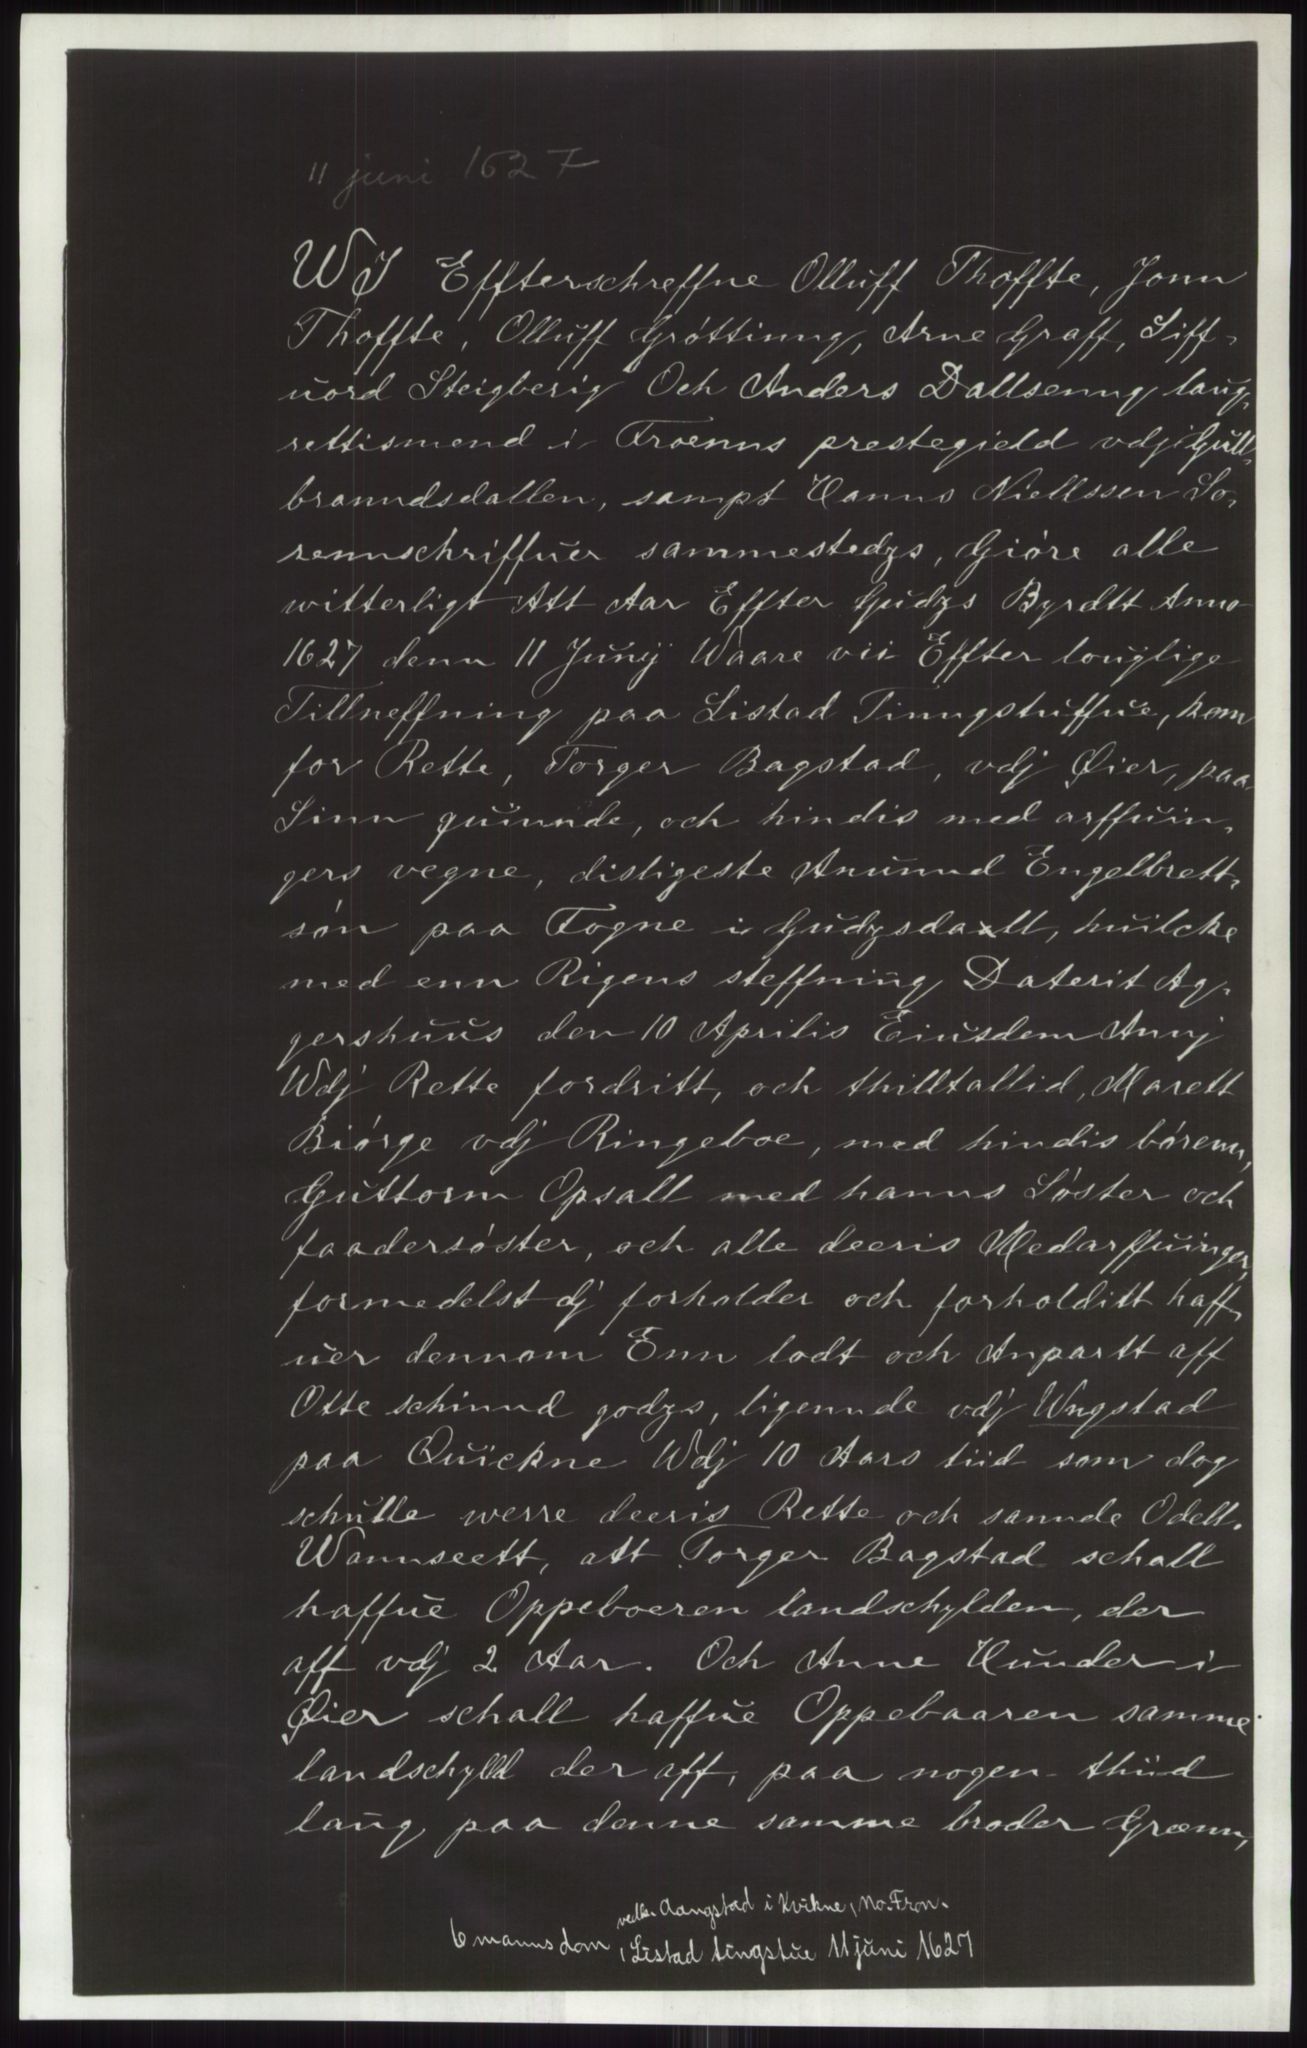 11 juni 1627
WJ Effterschreffne Olluff Thoffte, Jonn
Thoffte, Olluff Grøttinng, Arne Graff, Siff-
uord Steigberig Och Anders Dallsenng laug-
rettismend i Froenns prestegield vdj Gull-
branndsdallen, sampt Hanns Niellssen So-
rennschriffuer sammestedzs, Giøre alle
witterligt Att Aar Effter Gudzs Byrdtt Anno
1627 denn 11 Junij Waare vii Effter louglige
Tillneffning paa Listad Tinngstuffue, kom
for Rette, Torger Bagstad, vdj Øier, paa
Sinn quinnde, och hindis med arffuin-
gers vegne, disligeste Amund Engelbrett-
søn paa Fogne i Gudzsdalt, huilcke
med enn Rigens steffning Daterit Ag-
gershuus den 10 Aprilis Eiusdem Annj
Wdj Rette fordritt, och thilltallid, Marett
Biørge vdj Ringeboe, med hindis børenn,
Guttorm Opsall med hanns Søster och
faadersøster, och alle deeris Medarffuinger,
formedelst dj forholder och forholditt haff-
uer dennom Enn lodt och Anpartt aff
Otte schinnd godzs, ligennde vdj Wngstad
paa Quickne Wdj 10 Aars tiid som dog
schulle werre deeris Rette och sannde Odell.
Wannseett, att Torger Bagstad schall
haffue Oppeboeren landschylden, der
aff vdj 2 Aar. Och Anne Hunder i
Øier schall haffue Oppebaaren samme
landschylld der aff, paa nogen thiid
lang, paa denne samme broder Grænn,
vedk. Aangstad i Kvikne, No. Fron.
6 manns dom i Listad tingstue 11 juni 1627